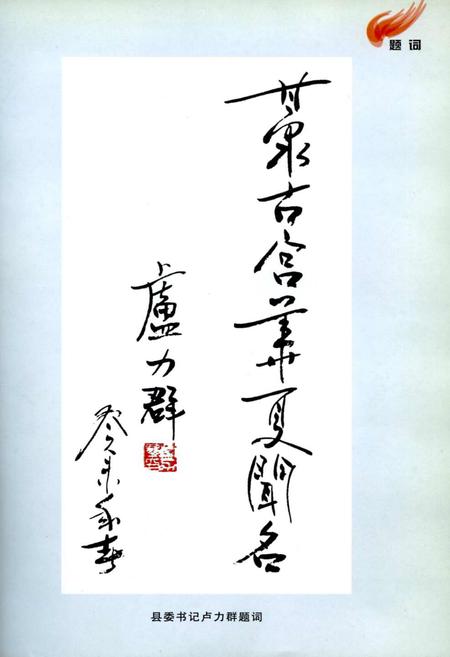 题词
蒙古含華夏聞名
盧力群
癸未年春
县委书记卢力群题词